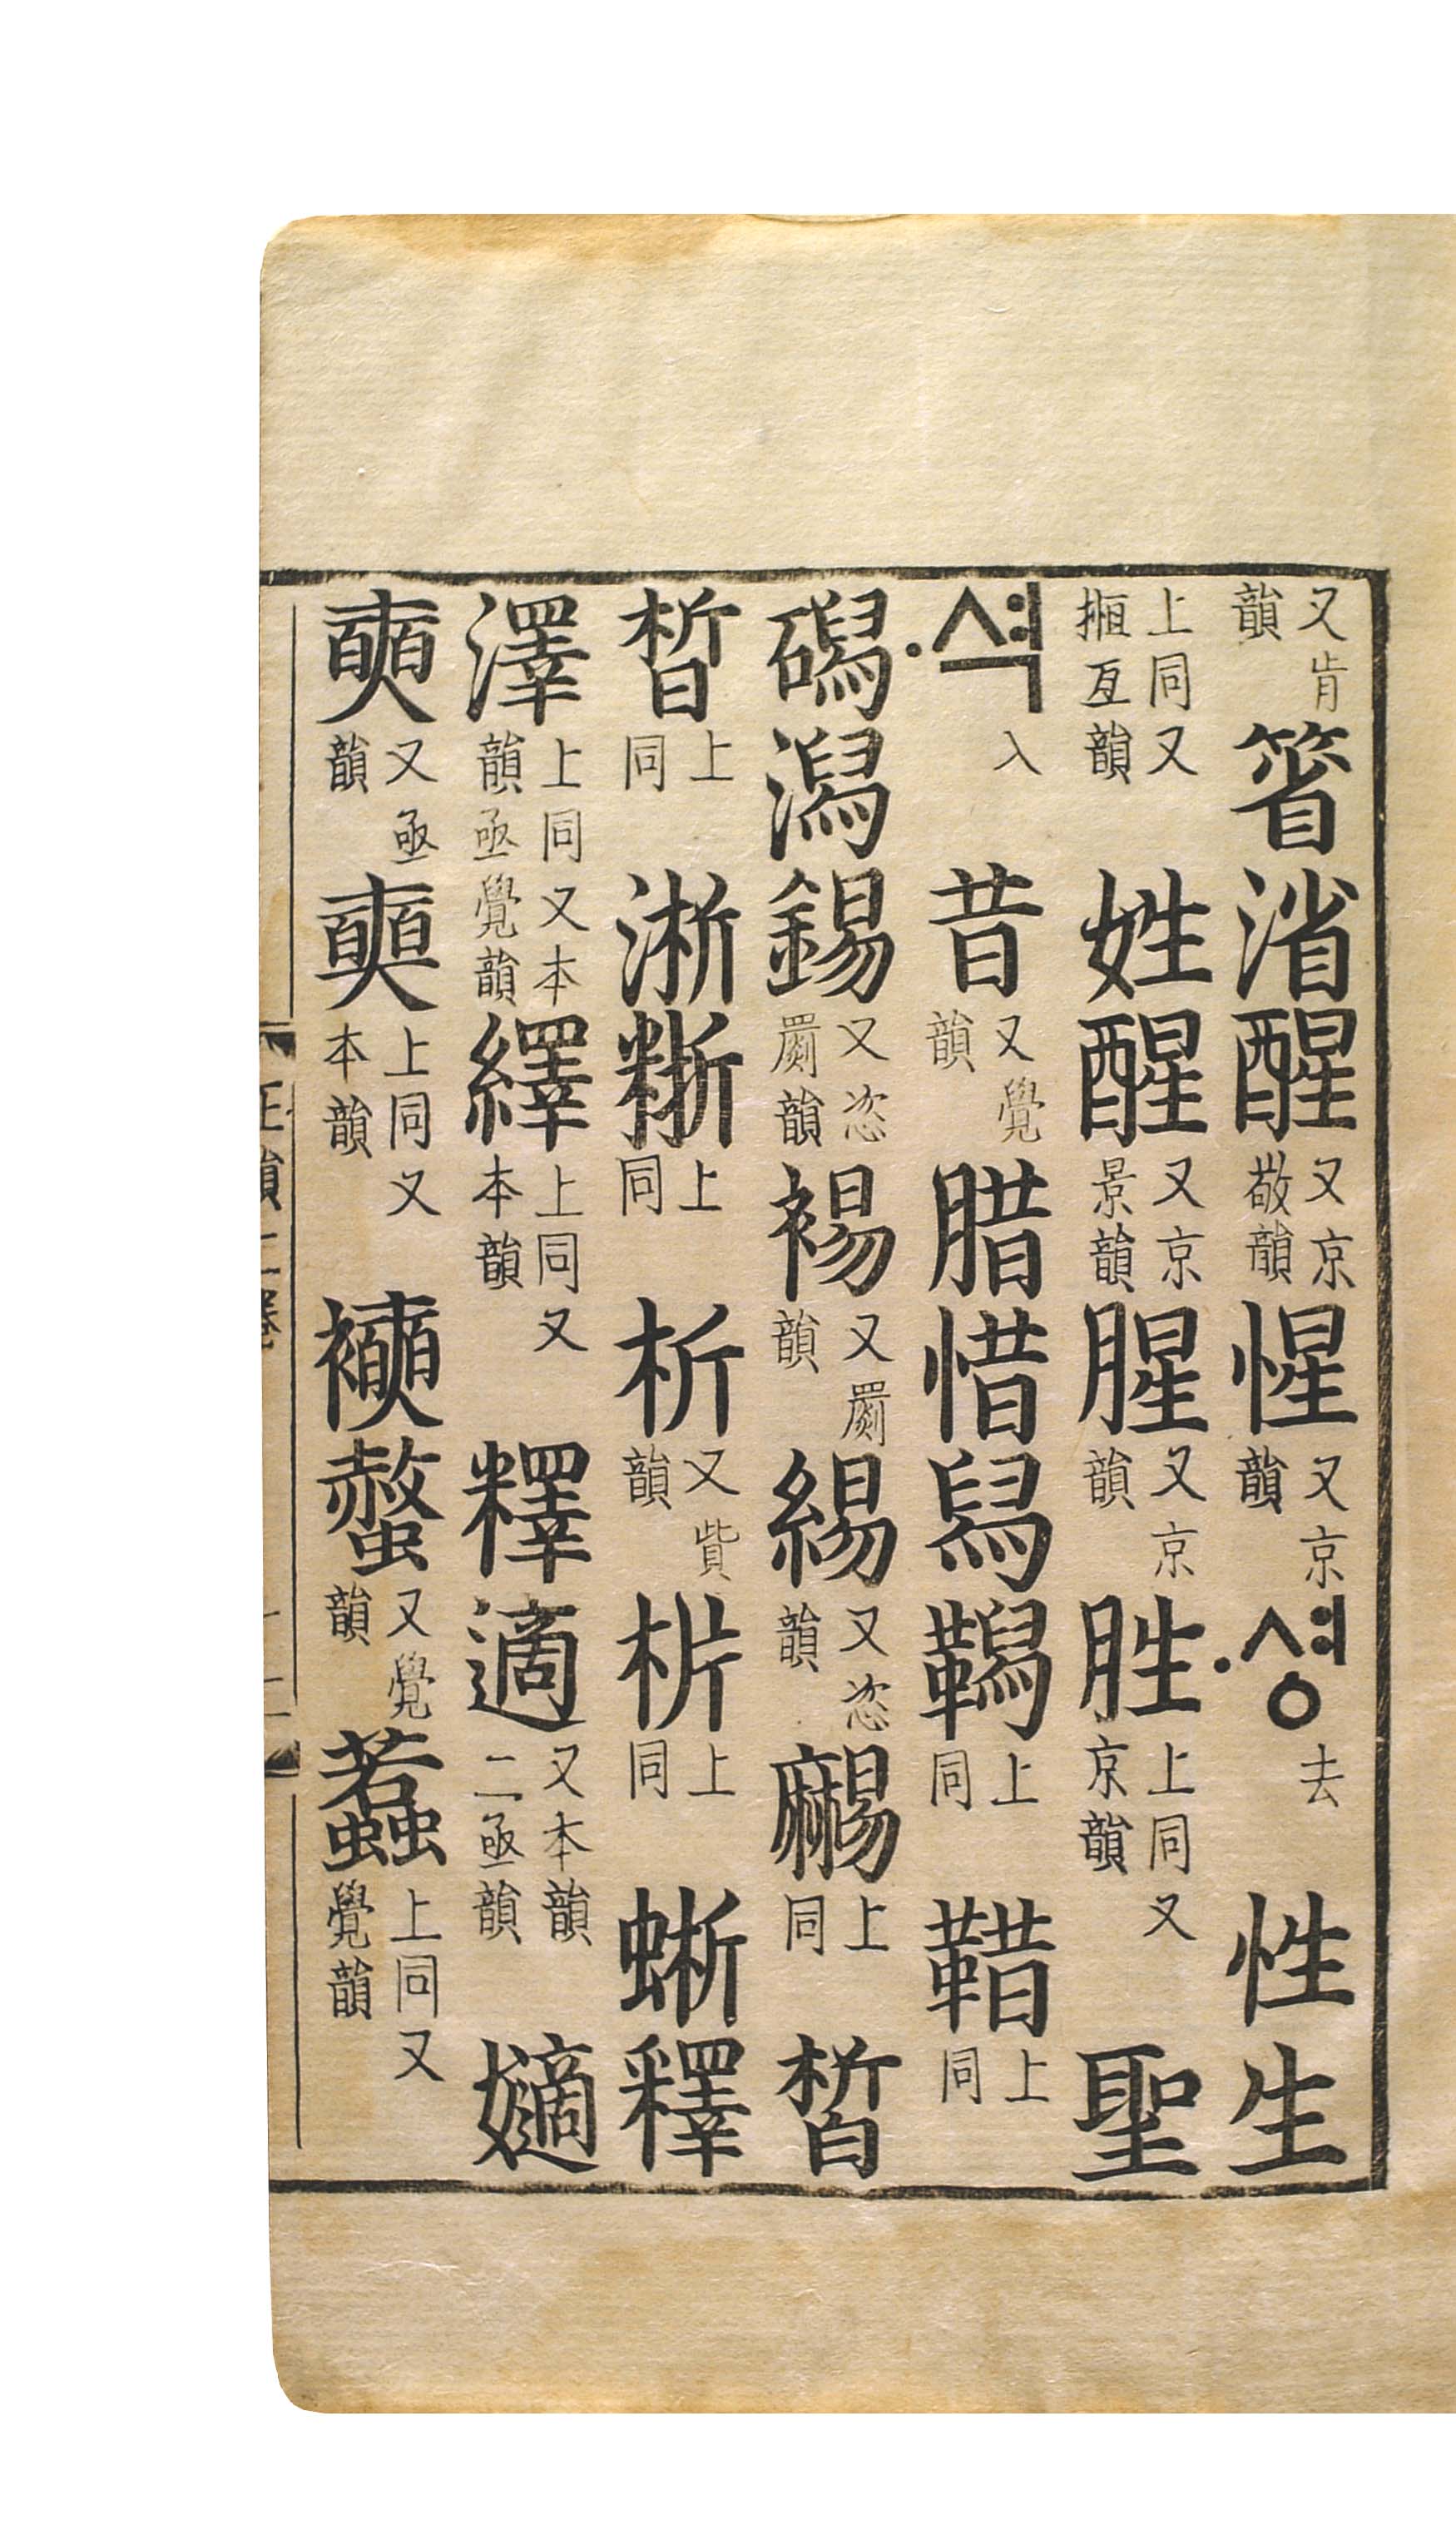 又肯韻箵渻醒又京敬韻惺又京韻셩去性生
上同又搄亙韻姓醒又京景韻腥又京韻胜上同又京韻聖
셕入昔又覺韻腊惜舃鞨上同䩞上同
碣潟錫又恣罽韻裼又罽韻緆又恣韻䴮上同晳
晢上同淅粣上同析又貲韻枿上同蜥釋
澤上同又本韻亟覺韻繹上同又本韻釋適又本韻二亟韻嫡
奭又亟韻奭上同又本韻襫螫又覺韻蠚上同又覺韻